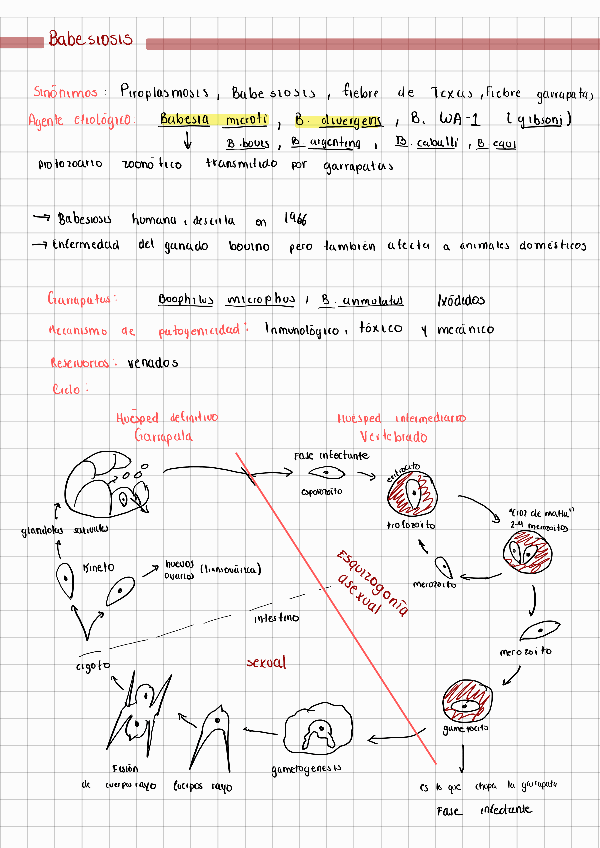 Babesiosis
Sinónimos: Piroplasmosis, Babesiosis, fiebre de Texas, Fiebre garrapatas
Agente etiológico: Babesia microti, B. divergens, B. WA-1 (gibsoni)
B. bovis, B argentina, B. caballi, B equi
protozoario zoonótico transmitido por garrapatas
→ Babesiosis humana, descrita en 1966
→ Enfermedad del ganado bovino pero también afecta a animales domésticos
Garrapatas: Boophilus microphus, B. annulatus Ixódidos
Mecanismo de patogenicidad: Inmunológico, tóxico y mecánico
Reservorios: venados
Ciclo:
Huésped definitivo
Garrapata
Huésped intermediario
Vertebrado
Fase infectante
esporozoito
eritrocito
trofozoito
"Cruz de malta"
2-4 merozoitos
merozoito
merozoito
gametocito
es lo que chupa la garrapata
Fase infectante
Esquizogonía
asexual
glándulas salivales
Kineto
huevos
ovarios (transovárica)
intestino
cigoto
sexual
Fusión
de cuerpos rayo
Cuerpos rayo
gametogenesis